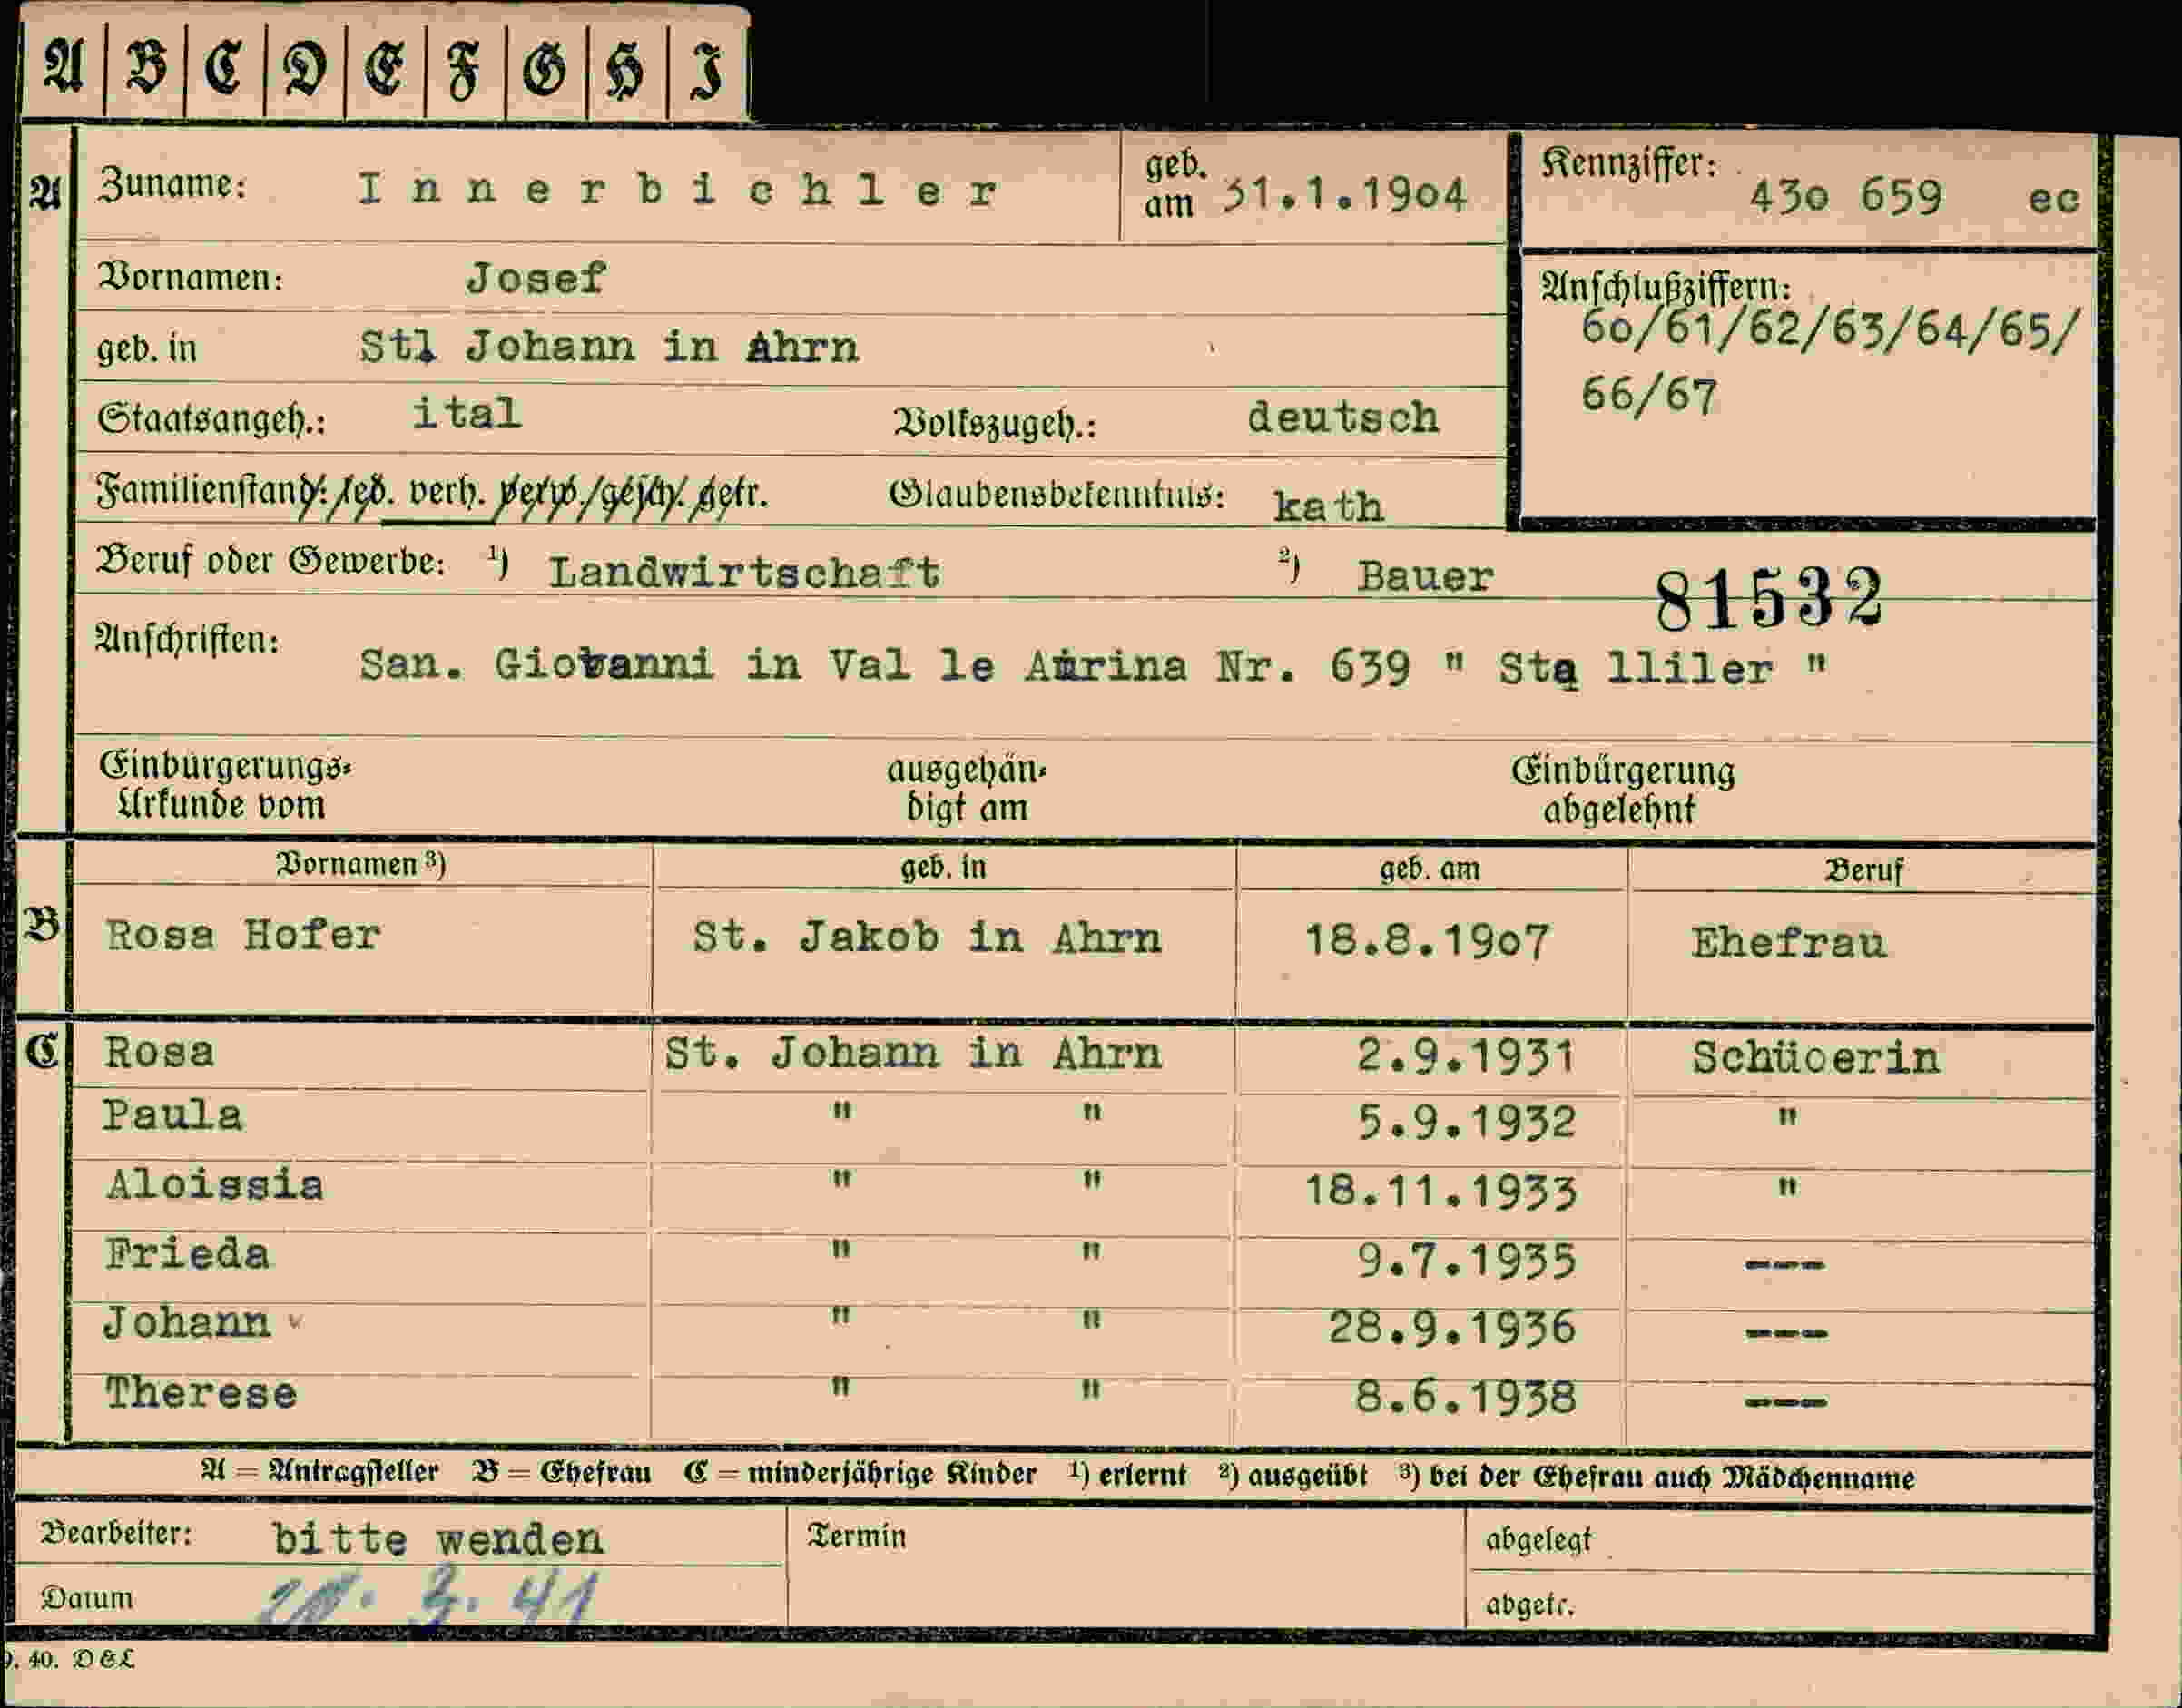 A B C D E F G H I
A Zuname: Innerbichler geb. am 31.1.1904 Kennziffer: 430 659 ec
Vornamen: Josef
Anschlußziffern:
60/61/62/63/64/65/
66/67
geb. in Stl Johann in Ahrn
Staatsangeh.: ital Volkszugeh.: deutsch
Familienstand: led. verh. verw. gesch. getr. Glaubensbekenntnis: kath
Beruf oder Gewerbe: 1) Landwirtschaft 2) Bauer
81532
Anschriften: San. Giovanni in Val le Aurina Nr. 639 " Sta lliler "
Einbürgerungs- ausgehän- Einbürgerung
Urkunde vom digt am abgelehnt
Vornamen 3) geb. in geb. am Beruf
B Rosa Hofer St. Jakob in Ahrn 18.8.1907 Ehefrau
C Rosa St. Johann in Ahrn 2.9.1931 Schüoerin
Paula " " 5.9.1932 "
Aloissia " " 18.11.1933 "
Frieda " " 9.7.1935 ---
Johann " " 28.9.1936 ---
Therese " " 8.6.1938 ---
A = Antragsteller B = Ehefrau C = minderjährige Kinder 1) erlernt 2) ausgeübt 3) bei der Ehefrau auch Mädchenname
Bearbeiter: bitte wenden Termin abgelegt
Datum 3. 41 abgetr.
40. D & L